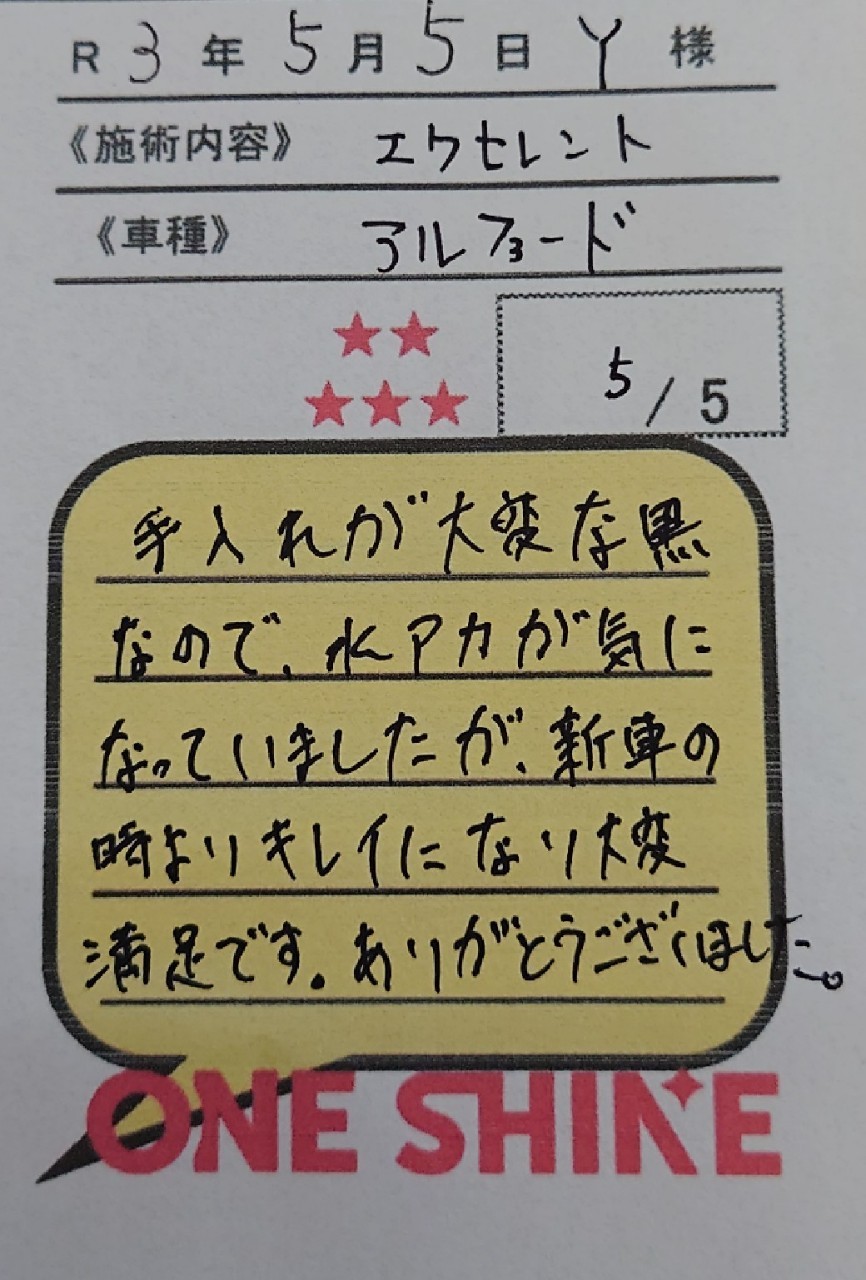 R 3 年 5 月 5 日 Y 様
《施術内容》 エクセレント
《車種》 アルフォード
★★
★★★
5 / 5
手入れが大変な黒
なので、水アカが気に
なっていましたが、新車の
時よりキレイになり大変
満足です。ありがとうございました。
ONE SHINE